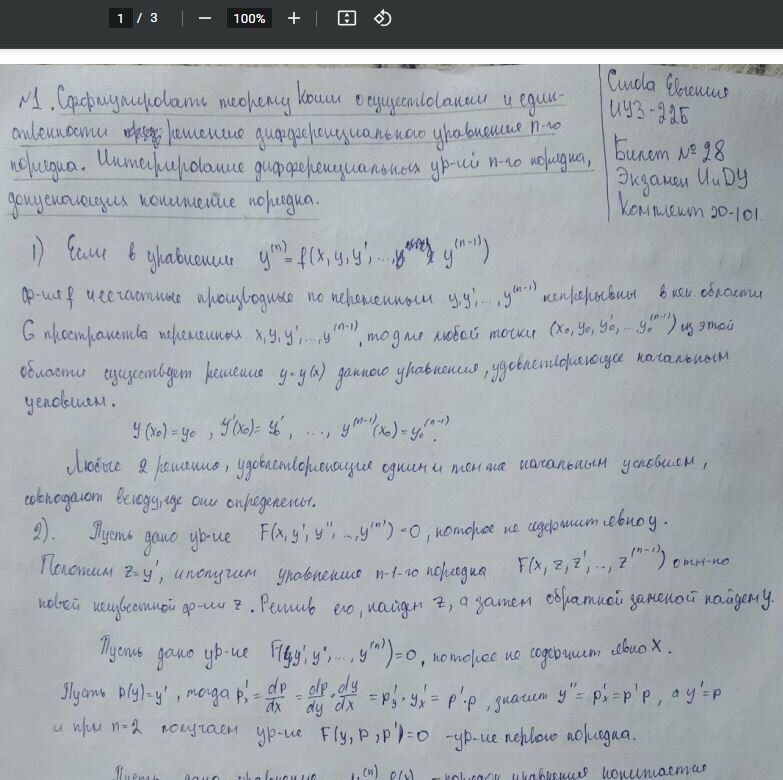 1 / 3 100%
№1. Сформулировать теорему Коши о существовании и един-
ственности решение дифференциального уравнения n-го
порядка. Интегрирование дифференциальных ур-ий n-го порядка,
допускающих понижение порядка.
Сиова Евгения
ИУ3-22Б
Билет № 28
Экзамен ИиДУ
Комплект 20-101.
1) Если в уравнение y⁽ⁿ⁾ = f(x, y, y', ..., y⁽ⁿ⁻¹⁾)
ф-ия f и её частные производные по переменным y, y', ..., y⁽ⁿ⁻¹⁾ непрерывны в нек. области
G пространства переменных x, y, y', ..., y⁽ⁿ⁻¹⁾, то для любой точки (x₀, y₀, y₀', ..., y₀⁽ⁿ⁻¹⁾) из этой
области существует решение y=y(x) данного уравнения, удовлетворяющее начальным
условиям.
y(x₀)=y₀, y'(x₀)=y₀', ..., y⁽ⁿ⁻¹⁾(x₀)=y₀⁽ⁿ⁻¹⁾.
Любые 2 решения, удовлетворяющие одним и тем же начальным условиям,
совпадают всюду, где они определены.
2). Пусть дано ур-ие F(x, y', y'', ..., y⁽ⁿ⁾)=0, которое не содержит явно y.
Положим z=y', и получим уравнение n-1-го порядка F(x, z, z', .., z⁽ⁿ⁻¹⁾) отн-но
новой неизвестной ф-ии z. Решив его, найдём z, а затем обратной заменой найдем y.
Пусть дано ур-ие F(y, y', y'', ..., y⁽ⁿ⁾)=0, которое не содержит явно x.
Пусть p(y)=y', тогда p'ₓ = dp/dx = dp/dy · dy/dx = p'_y · y'ₓ = p'·p, значит y''= p'ₓ=p'p, а y'=p
и при n=2 получаем ур-ие F(y, p, p')=0 -ур-ие первого порядка.
Пусть дано уравнение порядок уравнения понижается